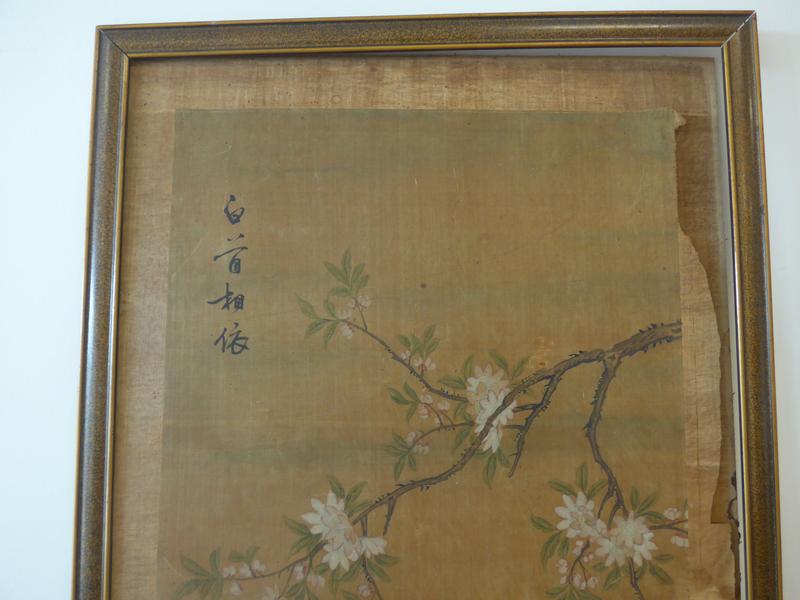 白首相依